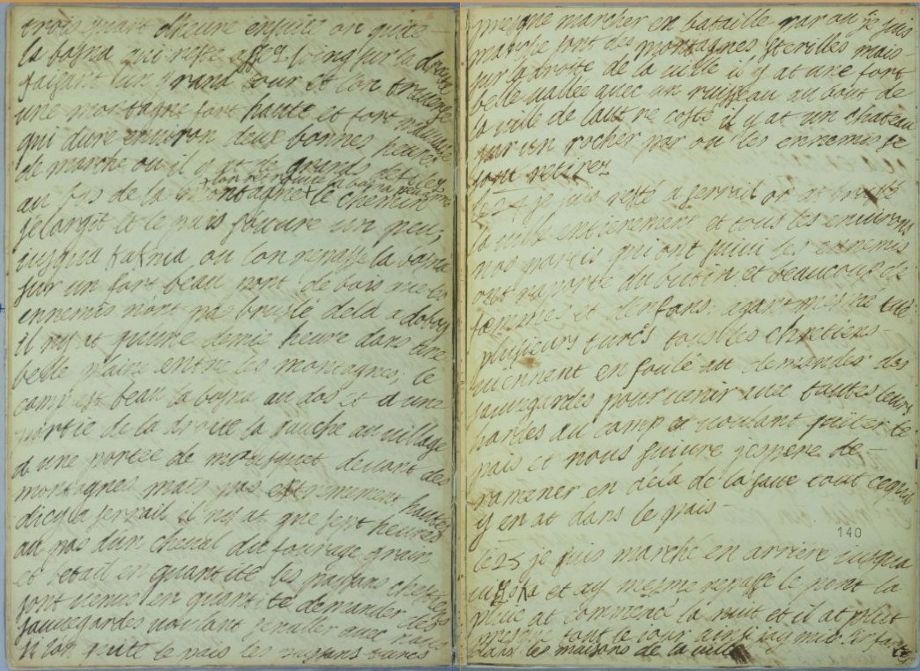 trois quart dheure ensuite on quite
la bosna qui reste assez loing sur la droite
faisant un grand tour et lon traverse
une montagne fort haute et fort mauvaise
qui dure environ deux bonnes heures
de marche ou il y at de grands
au pas de la montagne le chemin
lon retrouve la bosna
selargit et le pais souvre un peu
jusqua on lon repasse la bosna
sur un fort beau pont de bois que les
ennemis nont pas bruslé dela a doboy
il ny at quune demie heure dans une
belle plaine entre les montagnes le
camp est beau la bosna au dos et a une
partie de la droite la gauche au village
a une portée de mousquet devant des
montagnes mais pas extremement hautes
dicy a serrail il ny at que sept heures
au pas dun cheval du fourage grain
et betail en quantité les paysans chrestiens
sont venus en quantité demander des
sauvegardes voulant sen aller avec nous
si lon quite le pais les paysans turcs
presque marcher en bataille par ou je suis
marché sont des montagnes sterilles mais
sur la droite de la ville il y at une fort
belle vallée avec un ruisseau au bout de
la ville de lautre costé il y at un chateau
sur un rocher par ou les ennemis se
sont retirez
le 24 je suis resté a serrail on at bruslé
la ville entierement et tous les environs
nos partis qui ont suivi les ennemis
ont raporté du butin et beaucoup de
femmes et denfans ayant mesme tué
plusieurs turcs tous les chretiens
viennent en foule et demandes des
sauvegardes pour venir avec toutes leurs
hardes au camp et voulant quiter le
pais et nous suivre jespere de
ramener en déla de la save tout cequil
y en at dans le pais
140
le 25 je suis marché en arriere jusqua
et ay mesme repassé le pont la
pluie at commencé la nuit et il at plut
presque tout le jour ainsi jay mis
dans les maisons de la ville